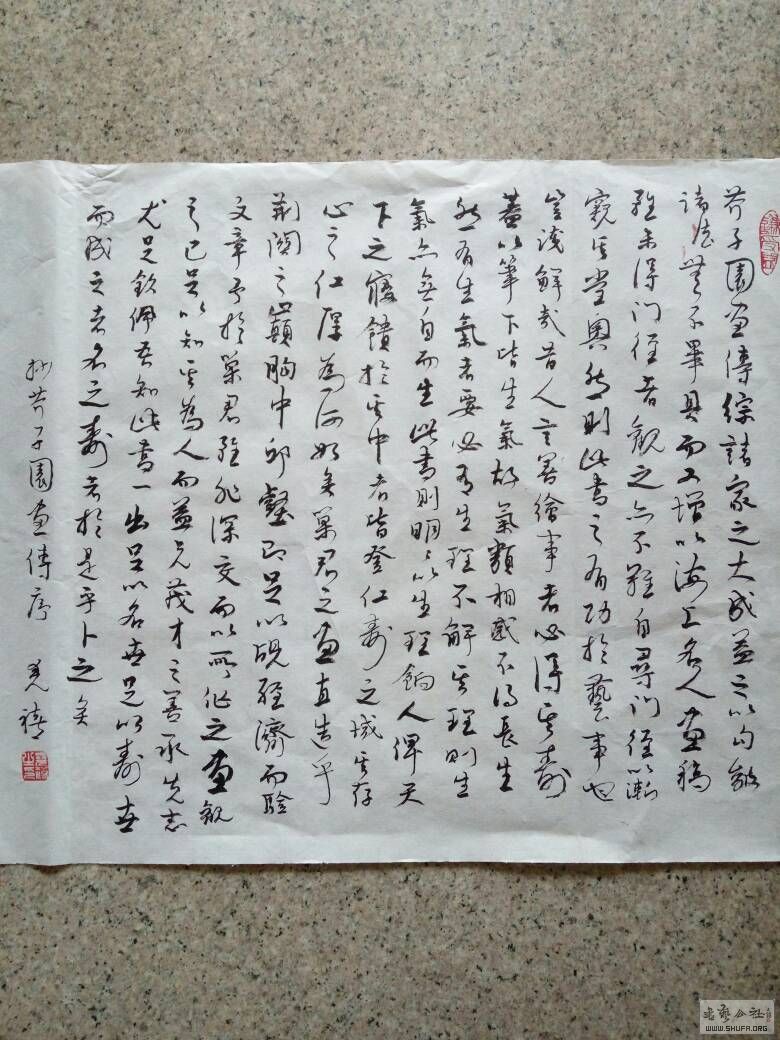 芥子園畫傳綜諸家之大成益之以勾皴
諸法無不畢具而又增以海上名人畫稿
雖未得門徑者觀之亦不難自尋門徑以漸
窺其堂奧然則此書之有功於藝事也
豈淺鮮哉昔人言善繪事者必得其壽
蓋以筆下皆生氣故氣類相感不得長生
然有生氣者要必有生理不解其理則生
氣亦無自而生此書則明明以生理餉人俾天
下之寢饋於其中者皆登仁壽之域其存
心之仁厚為何如矣巢君之畫直造乎
荊關之巔胸中邱壑即足以覘經濟而驗
文章予於巢君雖非深交而以所作之畫觀
之已足以知其為人而益見茂才之善承先志
尤足欽佩吾知此書一出足以名世足以壽世
而成之者名之壽者於是乎卜之矣
抄芥子園畫傳序
書藝公社
WWW.SHUFA.ORG